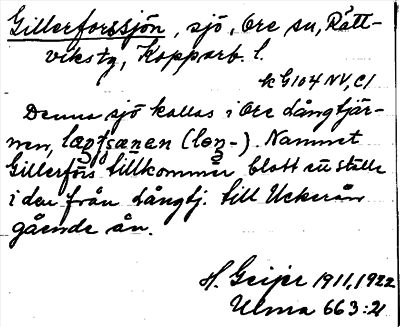 Gillerforssjön, sjö, Ore sn, Rätt-
vikstg, Kopparb. l.
k G104 NV, C1
Denna sjö kallas i Ore Långtjär-
nen, (loŋ-). Namnet
Gillerfors tillkommer blott ett ställe
i den från Långtj. till Ockerån
gående ån.
H. Geijer 1911, 1922
Ulma 663:21